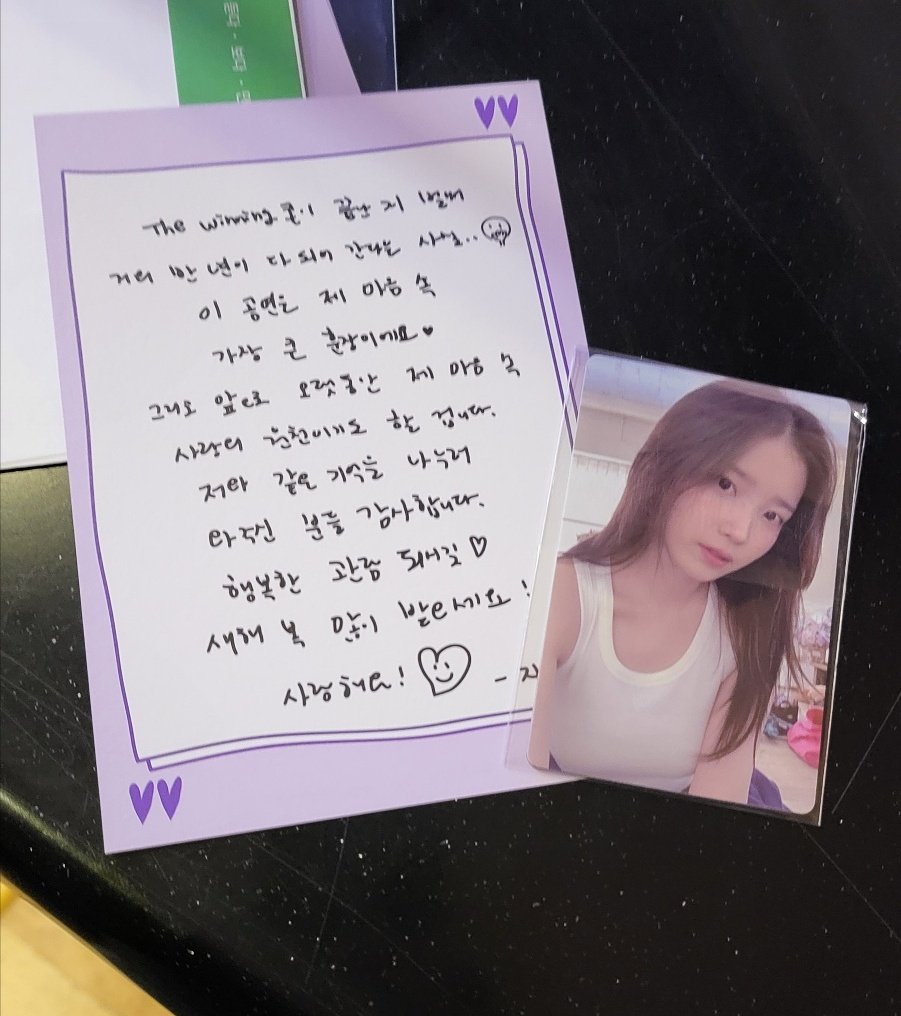 The winning 콘이 끝난 지 벌써
거의 반 년이 다 되어 간다는 사실..
이 공연은 제 마음 속
가장 큰 훈장이에요
그리고 앞으로 오랫동안 제 마음 속
사랑의 원천이기도 할 겁니다.
저와 같은 기억을 나누러
와주신 분들 감사합니다.
행복한 관람 되시길
새해 복 많이 받으세요!
사랑해요!